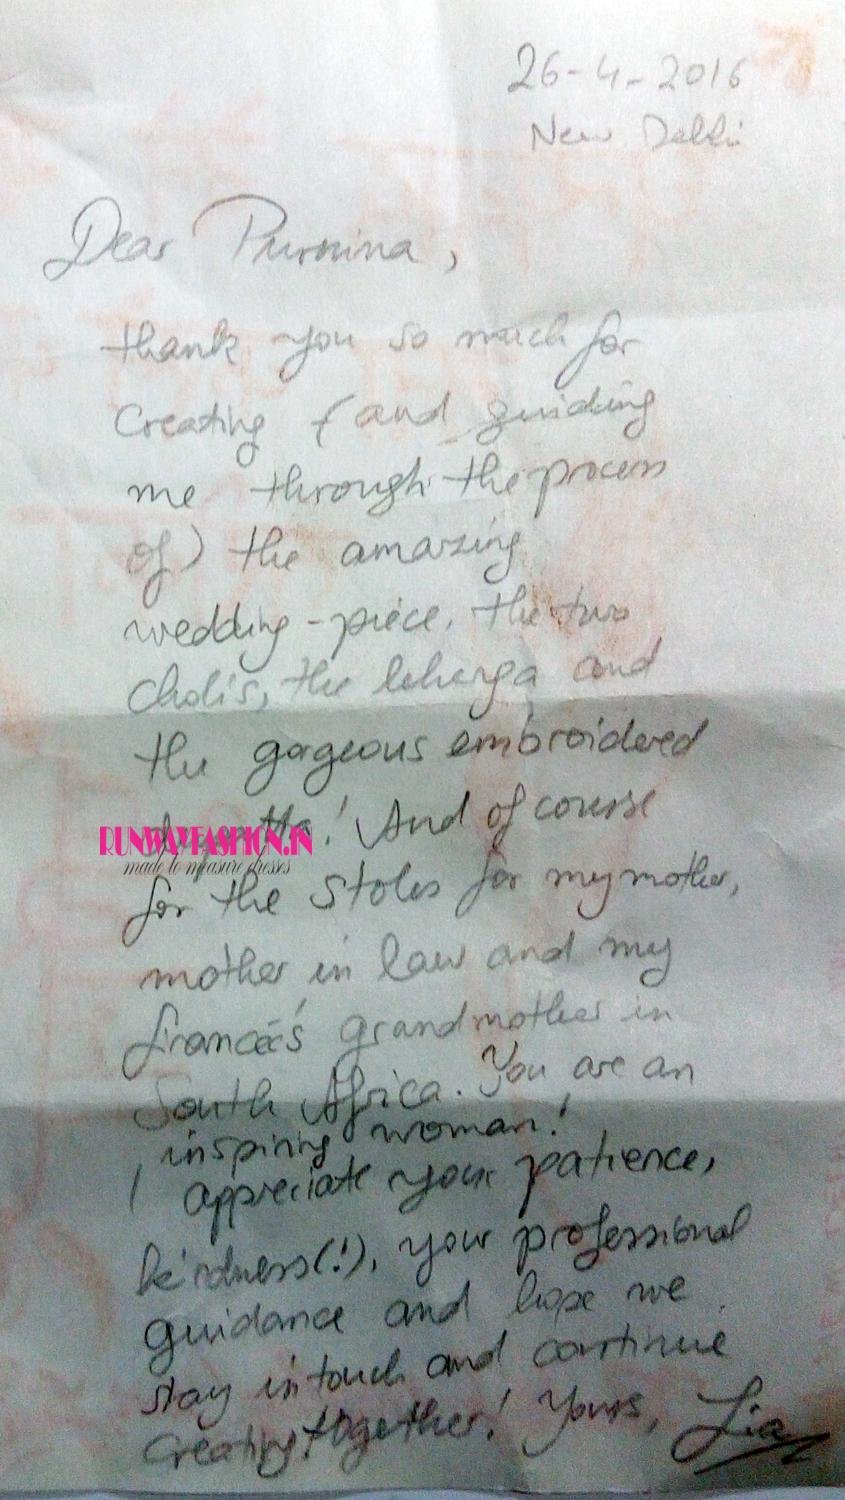 26-4-2016
New Delhi
Dear Purnima,
thank you so much for
creating (and guiding
me through the process
of) the amazing
wedding-piece, the two
choli's, the lehenga and
the gorgeous embroidered
! And of course
RUNWAYFASHION.IN
made to measure dresses
for the stoles for my mother,
mother in law and my
francée's grandmother in
South Africa. You are an
inspiring woman!
I appreciate your patience,
kindness(!), your professional
guidance and hope we
stay in touch and continue
creating together! Yours, Lia